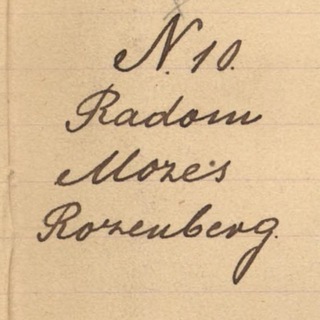 N. 10.
Radom
Mozes
Rozenberg.